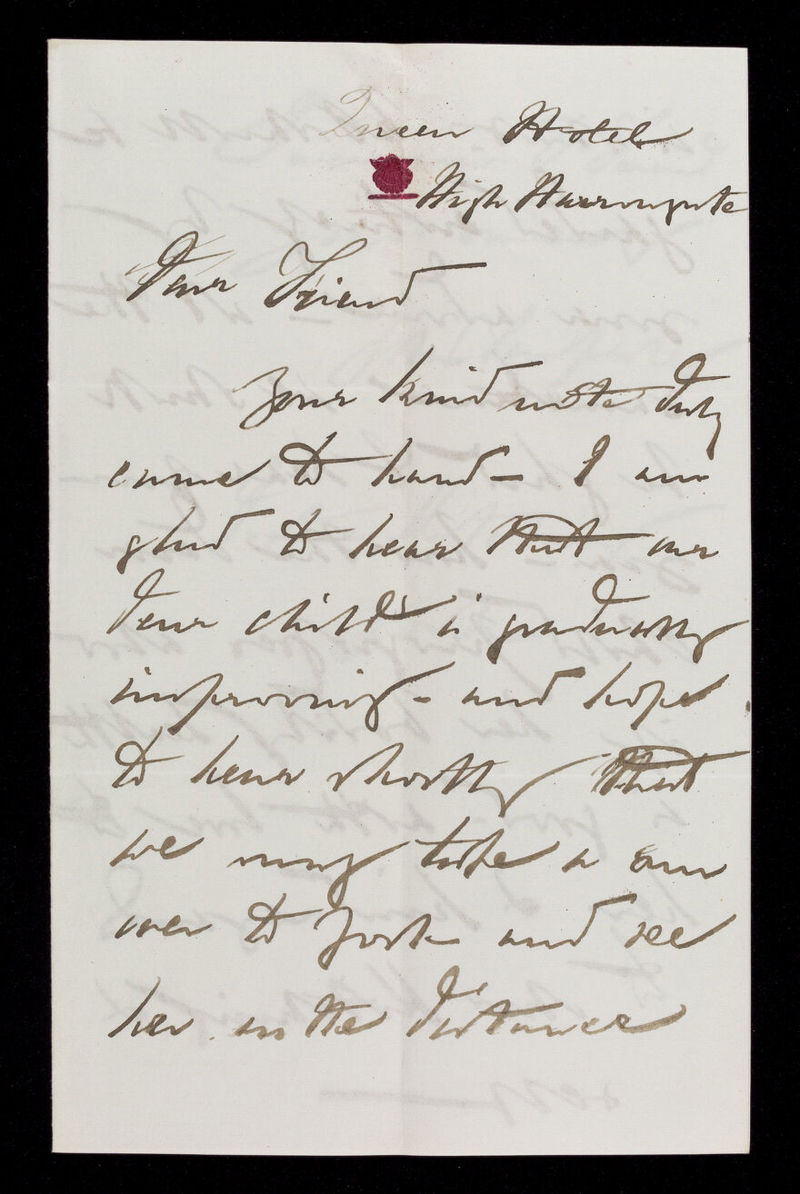 Queen Hotel
High Harrowgate
Dear Friend
Your kind note duly
came to hand - I am
glad to hear that our
dear child is gradually
improving - and hope
to hear shortly that
we may take a run
over to York and see
her in the distance